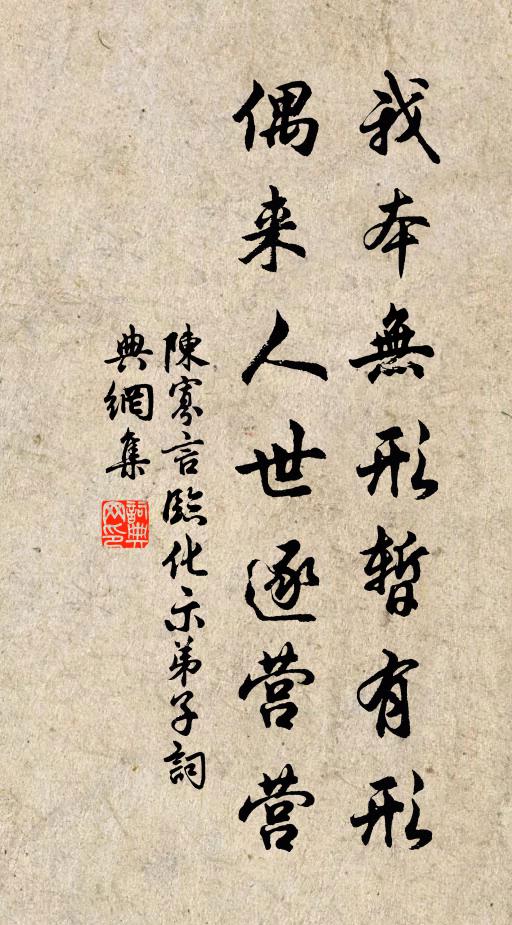 我本無形暫有形
偶来人世逐营营
陳寡言臨化示弟子詞
典網集
詞典
网印